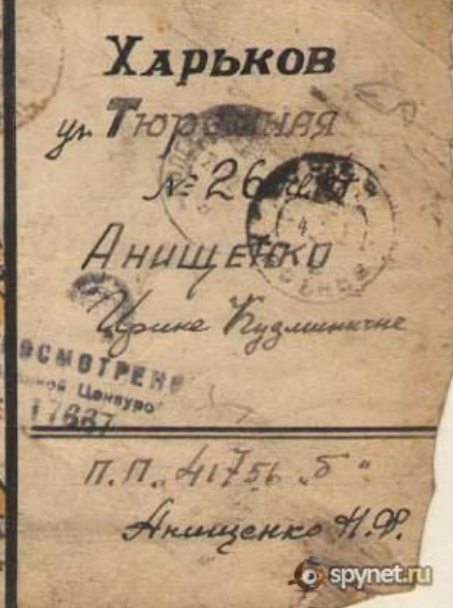 Харьков
ул Тюремная
№ 26
Анищенко
Ирине Кузминичне
ОСМОТРЕНО
Цензурой
17667
П.П. 41756 „б“
Анищенко Н.Ф.
spynet.ru